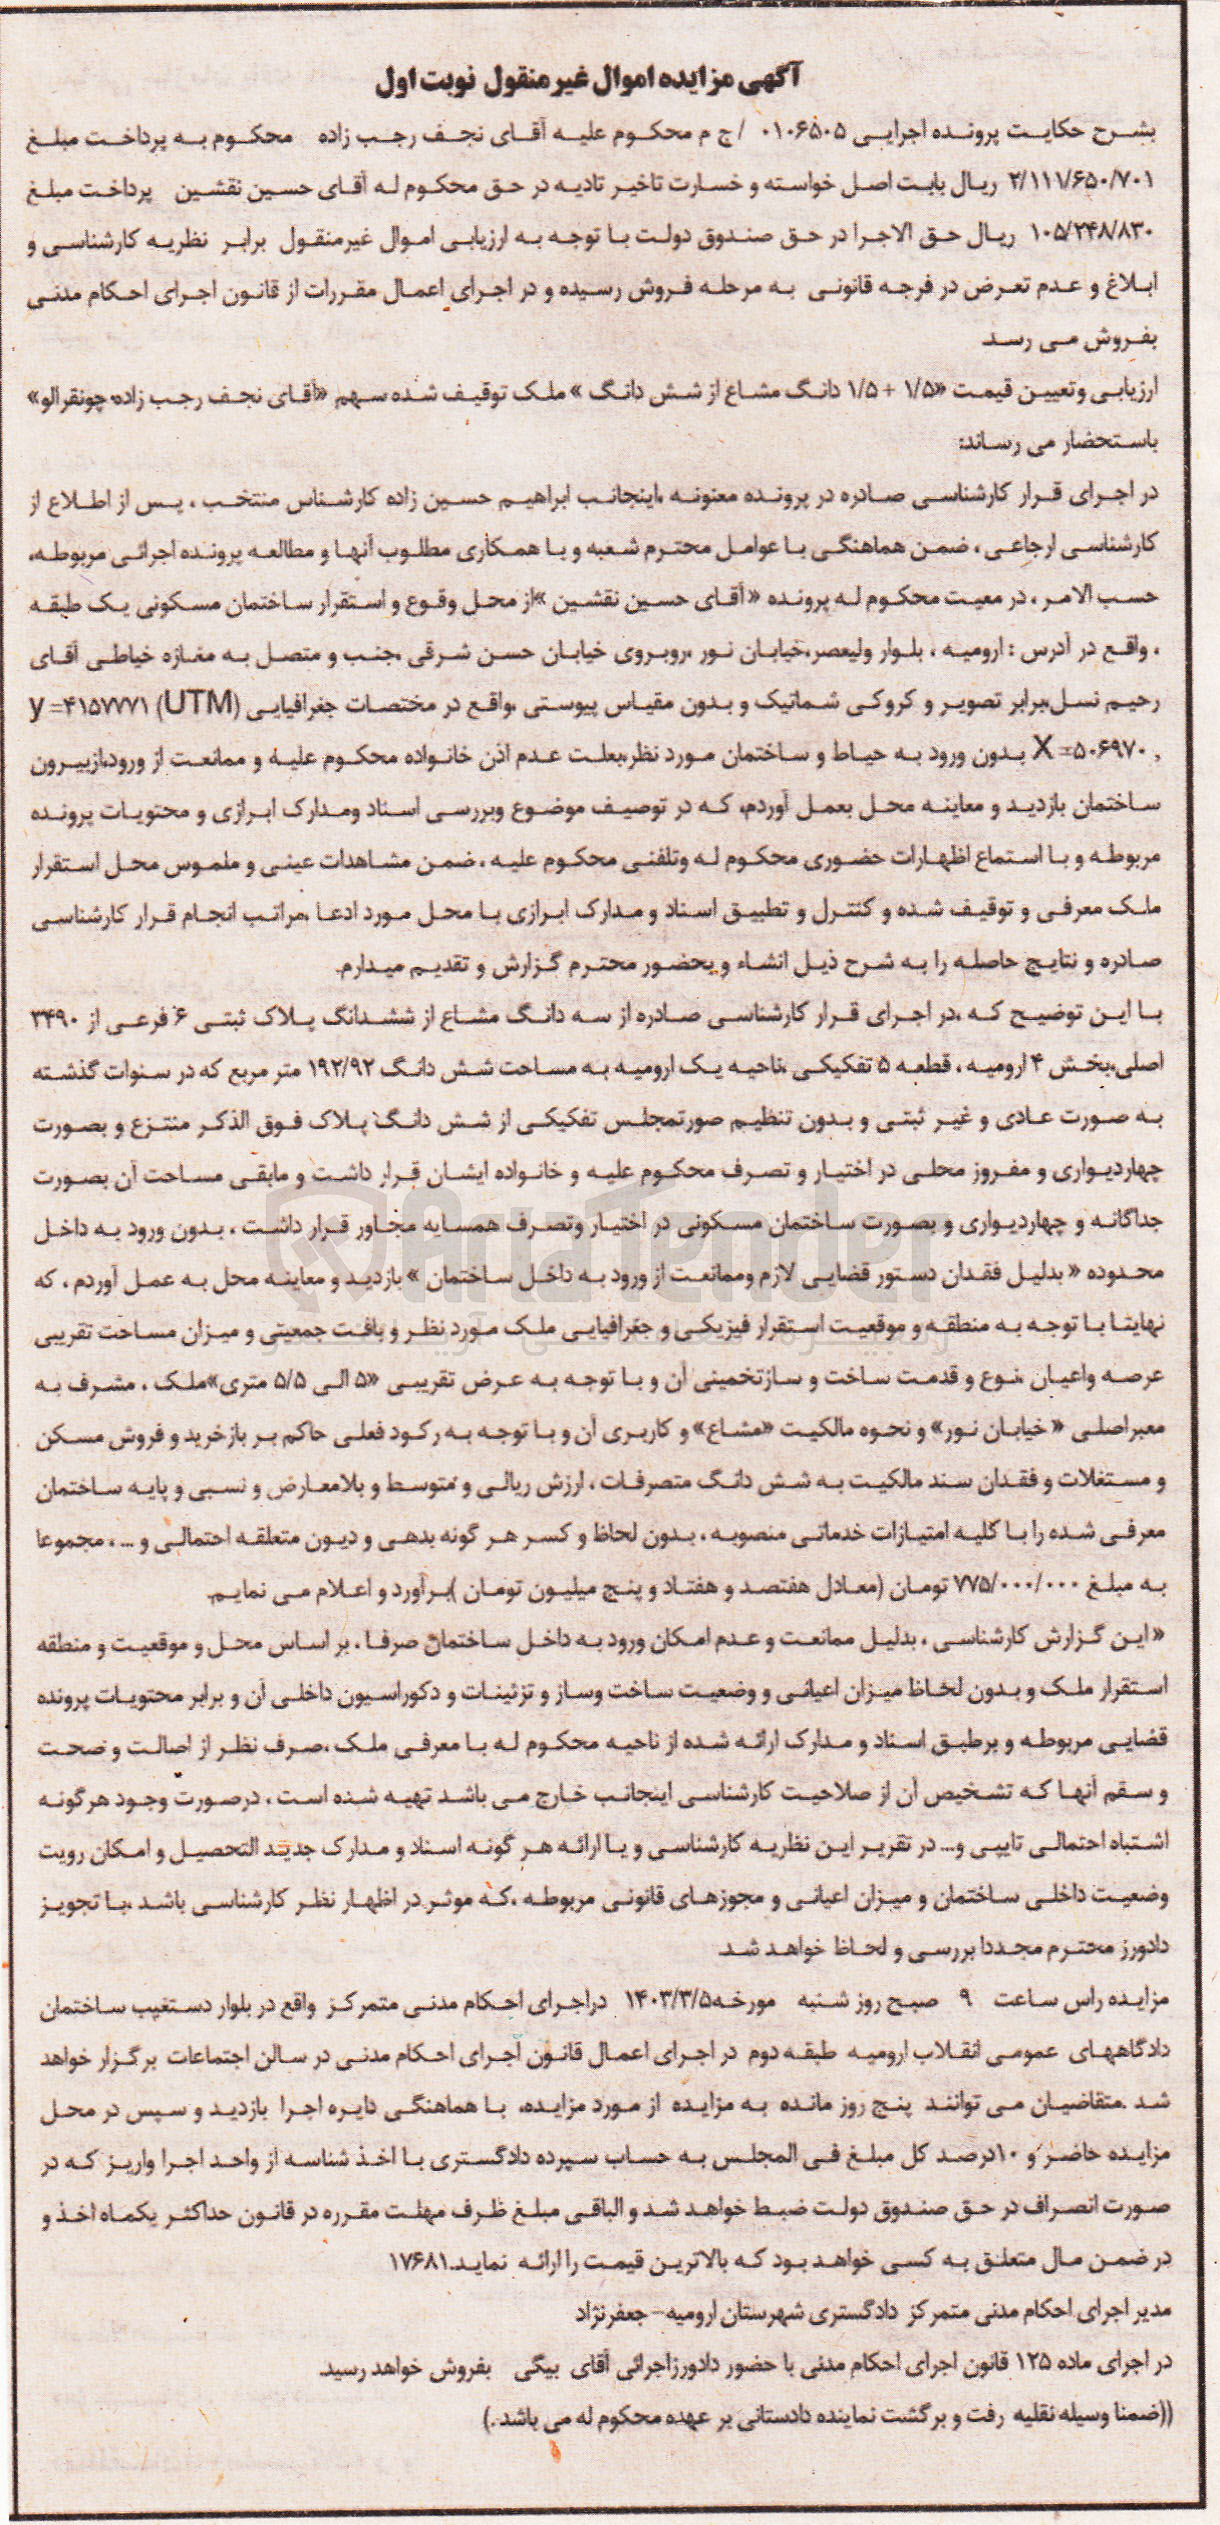 آگهی مزایده اموال غیر منقول نوبت اول
بشرح حکایت پرونده اجرایی ۰۱۰۶۵۰۵ / ج م محکوم علیه آقای نجف رجب زاده محکوم به پرداخت مبلغ
۲/۱۱۱/۶۵۰/۷۰۱ ریال بابت اصل خواسته و خسارت تاخیر تادیه در حق محکوم له آقای حسین نقشین پرداخت مبلغ
۱۰۵/۲۴۸/۸۳۰ ریال حق الاجرا در حق صندوق دولت با توجه به ارزیابی اموال غیرمنقول برابر نظریه کارشناسی و
ابلاغ و عدم تعرض در فرجه قانونی به مرحله فروش رسیده و در اجرای اعمال مقررات از قانون اجرای احکام مدنی
بفروش می رسد.
ارزیابی وتعیین قیمت «۱/۵ + ۱/۵ دانگ مشاع از شش دانگ » ملک توقیف شده سهم «آقای نجف رجب زاده چونقرالو»
باستحضار می رساند:
در اجرای قرار کارشناسی صادره در پرونده معنونه ،اینجانب ابراهیم حسین زاده کارشناس منتخب ، پس از اطلاع از
کارشناسی ارجاعی ، ضمن هماهنگی با عوامل محترم شعبه و با همکاری مطلوب آنها و مطالعه پرونده اجرائی مربوطه،
حسب الامر ، در معیت محکوم له پرونده « آقای حسین نقشین »از محل وقوع و استقرار ساختمان مسکونی یک طبقه
، واقع در آدرس : ارومیه ، بلوار ولیعصر،خیابان نور ،روبروی خیابان حسن شرقی ،جنب و متصل به مغازه خیاطی آقای
رحیم نسل،برابر تصویر و کروکی شماتیک و بدون مقیاس پیوستی ،واقع در مختصات جغرافیایی (UTM) y =۴۱۵۷۷۷۱
, X =۵۰۶۹۷۰ بدون ورود به حیاط و ساختمان مورد نظر،بعلت عدم اذن خانواده محکوم علیه و ممانعت از ورود،ازبیرون
ساختمان بازدید و معاینه محل بعمل آوردم، که در توصیف موضوع وبررسی اسناد ومدارک ابرازی و محتویات پرونده
مربوطه و با استماع اظهارات حضوری محکوم له وتلفنی محکوم علیه ، ضمن مشاهدات عینی و ملموس محل استقرار
ملک معرفی و توقیف شده و کنترل و تطبیق اسناد و مدارک ابرازی با محل مورد ادعا ،مراتب انجام قرار کارشناسی
صادره و نتایج حاصله را به شرح ذیل انشاء و بحضور محترم گزارش و تقدیم میدارم.
با این توضیح که ،در اجرای قرار کارشناسی صادره از سه دانگ مشاع از ششدانگ پلاک ثبتی ۶ فرعی از ۳۴۹۰
اصلی،بخش ۴ ارومیه ، قطعه ۵ تفکیکی ،ناحیه یک ارومیه به مساحت شش دانگ ۱۹۲/۹۲ متر مربع که در سنوات گذشته
به صورت عادی و غیر ثبتی و بدون تنظیم صورتمجلس تفکیکی از شش دانگ پلاک فوق الذکر منتزع و بصورت
چهاردیواری و مفروز محلی در اختیار و تصرف محکوم علیه و خانواده ایشان قرار داشت و مابقی مساحت آن بصورت
جداگانه و چهاردیواری و بصورت ساختمان مسکونی در اختیار وتصرف همسایه مجاور قرار داشت ، بدون ورود به داخل
محدوده « بدلیل فقدان دستور قضایی لازم وممانعت از ورود به داخل ساختمان » بازدید و معاینه محل به عمل آوردم ، که
نهایتا با توجه به منطقه و موقعیت استقرار فیزیکی و جغرافیایی ملک مورد نظر و بافت جمعیتی و میزان مساحت تقریبی
عرصه واعیان ،نوع و قدمت ساخت و سازتخمینی آن و با توجه به عرض تقریبی «۵ الی ۵/۵ متری»ملک ، مشرف به
معبراصلی « خیابان نور» و نحوه مالکیت «مشاع» و کاربری آن و با توجه به رکود فعلی حاکم بر بازخرید و فروش مسکن
و مستغلات و فقدان سند مالکیت به شش دانگ متصرفات ، ارزش ریالی و متوسط و بلامعارض و نسبی و پایه ساختمان
معرفی شده را با کلیه امتیازات خدماتی منصوبه ، بدون لحاظ و کسر هر گونه بدهی و دیون متعلقه احتمالی و ... ، مجموعا
به مبلغ ۷۷۵/۰۰۰/۰۰۰ تومان (معادل هفتصد و هفتاد و پنج میلیون تومان )برآورد و اعلام می نمایم.
« این گزارش کارشناسی ، بدلیل ممانعت و عدم امکان ورود به داخل ساختمان صرفا ، بر اساس محل و موقعیت و منطقه
استقرار ملک و بدون لحاظ میزان اعیانی و وضعیت ساخت وساز و تزئینات و دکوراسیون داخلی آن و برابر محتویات پرونده
قضایی مربوطه و برطبق اسناد و مدارک ارائه شده از ناحیه محکوم له با معرفی ملک ،صرف نظر از اصالت و صحت
و سقم آنها که تشخیص آن از صلاحیت کارشناسی اینجانب خارج می باشد تهیه شده است ، درصورت وجود هرگونه
اشتباه احتمالی تایپی و... در تقریر این نظریه کارشناسی و یا ارائه هر گونه اسناد و مدارک جدید التحصیل و امکان رویت
وضعیت داخلی ساختمان و میزان اعیانی و مجوزهای قانونی مربوطه ،که موثر در اظهار نظر کارشناسی باشد ،با تجویز
دادورز محترم مجددا بررسی و لحاظ خواهد شد.
مزایده راس ساعت ۹ صبح روز شنبه مورخه۱۴۰۳/۳/۵ دراجرای احکام مدنی متمرکز واقع در بلوار دستغیب ساختمان
دادگاههای عمومی انقلاب ارومیه طبقه دوم در اجرای اعمال قانون اجرای احکام مدنی در سالن اجتماعات برگزار خواهد
شد .متقاضیان می توانند پنج روز مانده به مزایده از مورد مزایده، با هماهنگی دایره اجرا بازدید و سپس در محل
مزایده حاضر و ۱۰درصد کل مبلغ فی المجلس به حساب سپرده دادگستری با اخذ شناسه از واحد اجرا واریز که در
صورت انصراف در حق صندوق دولت ضبط خواهد شد و الباقی مبلغ ظرف مهلت مقرره در قانون حداکثر یکماه اخذ و
در ضمن مال متعلق به کسی خواهد بود که بالاترین قیمت را ارائه نماید.۱۷۶۸۱
مدیر اجرای احکام مدنی متمرکز دادگستری شهرستان ارومیه- جعفرنژاد
در اجرای ماده ۱۲۵ قانون اجرای احکام مدنی با حضور دادورزاجرائی آقای بیگی بفروش خواهد رسید.
((ضمنا وسیله نقلیه رفت و برگشت نماینده دادستانی بر عهده محکوم له می باشد.)
AriaTender